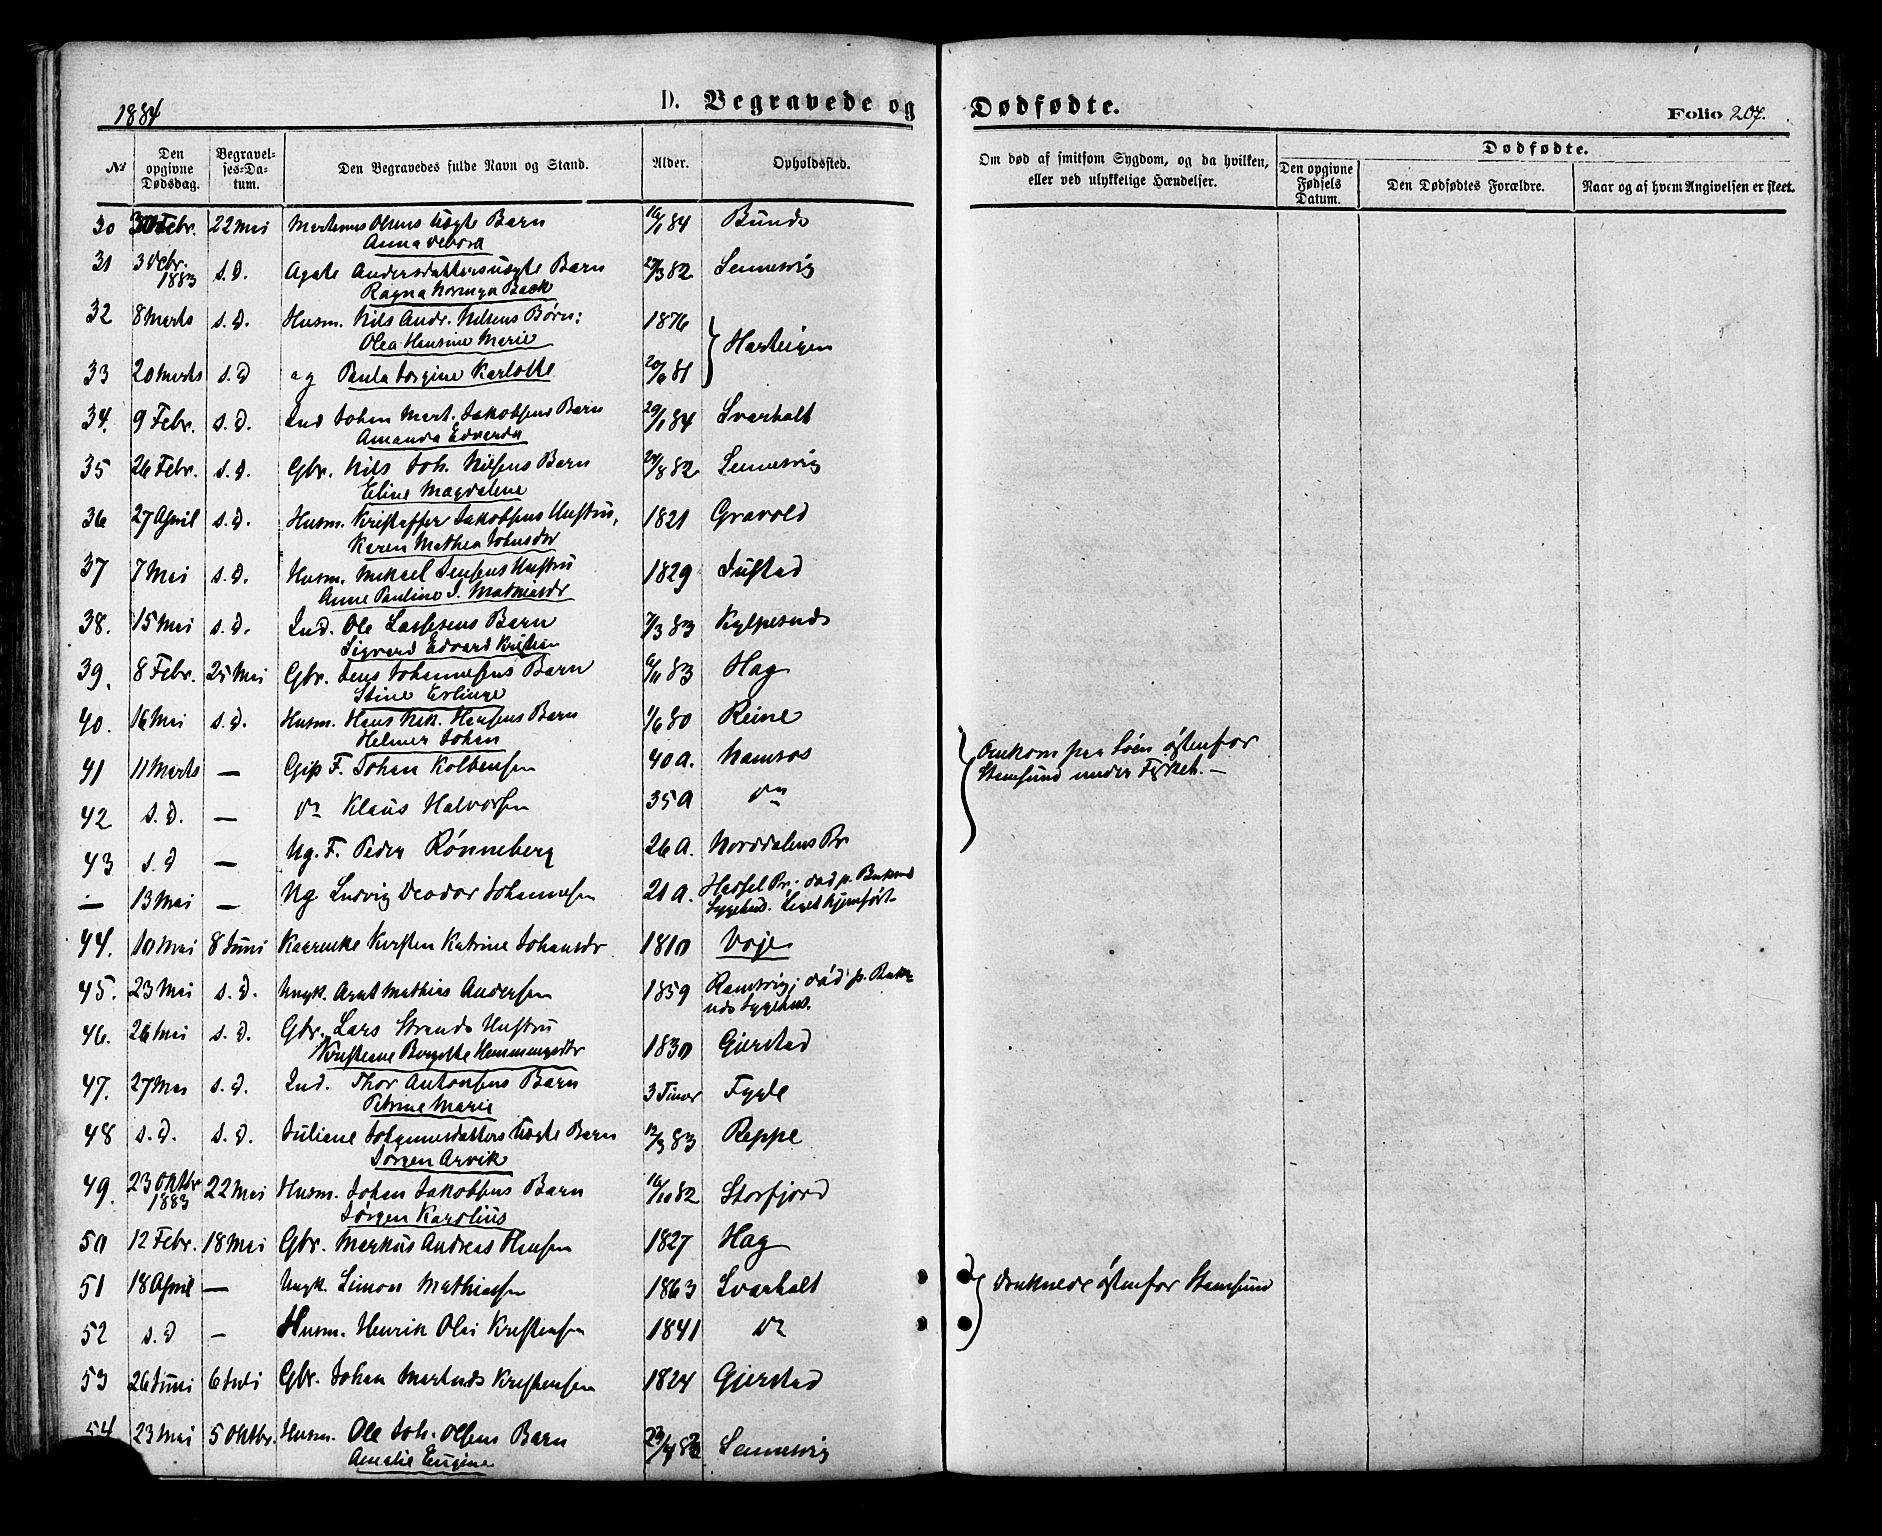 1884 D. Begravede og Dødfødte. Folio 207.
No Den opgivne Dødsdag. Begravelses-Datum. Den Begravedes fulde Navn og Stand. Alder. Opholdssted. Om død af smitsom Sygdom, og da hvilken, eller ved ulykkelige Hændelser. Dødfødte. Den opgivne Fødsels Datum. Den Dødfødtes Forældre. Naar og af hvem Angivelsen er skeet.
30 Febr. 22 Mai Martinus Olsens Barn 16/1 84
Anna Debora
31 3 Debr. 1883 s.D. Agate Andersdatters uægte Barn 27/3 82 Sennesvig
Ragna Back
32 8 Marts s.D. Husm. Nils Andr. Nilsens Børn: 1876
Olea Hansine Marie Harteigen
33 20 Marts s.D og Paula Jorgine Karlotte
34. 9 Febr. s.D. Ind Johan Mart. Jakobsens Barn 29/1 84 Svarholt
Amanda Edvarda
35 26 Febr. s.D. Gbr. Nils Joh. Nilsens Barn 24/8 82 Sennesvig
Eline Magdalene
36 27 April s.D. Husm. Kristoffer Jakobsens Hustru, 1821 Gravold
Karen Mathea Johnsdr
37 7 Mai s.D. Husm. Mikael Jensens Hustru 1829 Justad
Anne Pauline J. Mathiasdr
38. 15 Mai s.D. Ind. Ole Larsens Barn 7/3 83 Kylpesnes
Sigvard Edvard Kristian
39. 8 Febr. 25 Mai Gbr. Jens Johannesens Barn 6/11 83 Hag
Stine Erlinge
40. 16 Mai s.D. Husm. Hans Nik. Hansens Barn 1/6 80 Reine
Helmer Johan
41 11 Marts — Gift F. Johan Kolbensen 40 A. Namsos Omkom paa Søen østenfor
Stamsund under Fisket.—
42 s.D. — do Klaus Halvorsen 35 A do
43 s.D — Ug. F. Peder Rønneberg 26 A. Norddalens Pr.
— 13 Mai — Ug. Ludvig Deodor Johannesen 21 A. Hadsel Pr.; død p. Buksnes
Sygehus. Liget hjemført
44. 10 Mai 8 Juni Kaarenke Kirsten Katrine Johansdr. 1810 Voje
45. 23 Mai s.D. Ungk. Arnt Mathias Andersen 1859 Ramsvig; død p. Buks-
nes Sygehus.
46. 26 Mai s.D. Gbr. Lars Strands Hustru
Kristiane Birgitte Hemmingsdtr 1830 Gjerstad
47. 27 Mai s.D. Ind. Thor Antonsens Barn 3 Timer Fygle
Petrine Marie
48 s.D. s.D. Juliane Johannesdatters Uægte Barn 12/3 83 Reppe
Jørgen Arvik
49. 23 Oktbr. 1883 22 Mai Husm. Johan Jakobsens Barn 16/10 82 Storfjord
Jørgen Karolius
50 12 Febr. 18 Mai Gbr. Markus Andreas Hansen 1827 Hag
51 18 April — Ungk. Simon Mathiasen 1863 Svarholt druknede østenfor Stamsund
52 s.D — Husm. Henrik Olai Kristensen 1841 do
53 26 Juni 6 Juli Gbr. Johan Martinus Kristensen 1824 Gjerstad
54 23 Mai 5 Oktbr. Husm. Ole Joh. Olsens Barn Sennesvig
Amalie Eugine